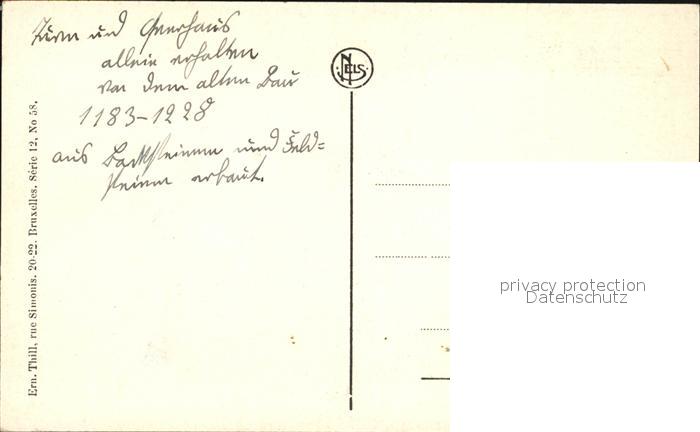 Turm und Querhaus
allein erhalten
von dem alten Bau
1183-1228
aus Backsteinen und Feld=
steinen erbaut.
NELS
Ern. Thill, rue Simonis. 20-22. Bruxelles. Série 12, No 58.
privacy protection
Datenschutz